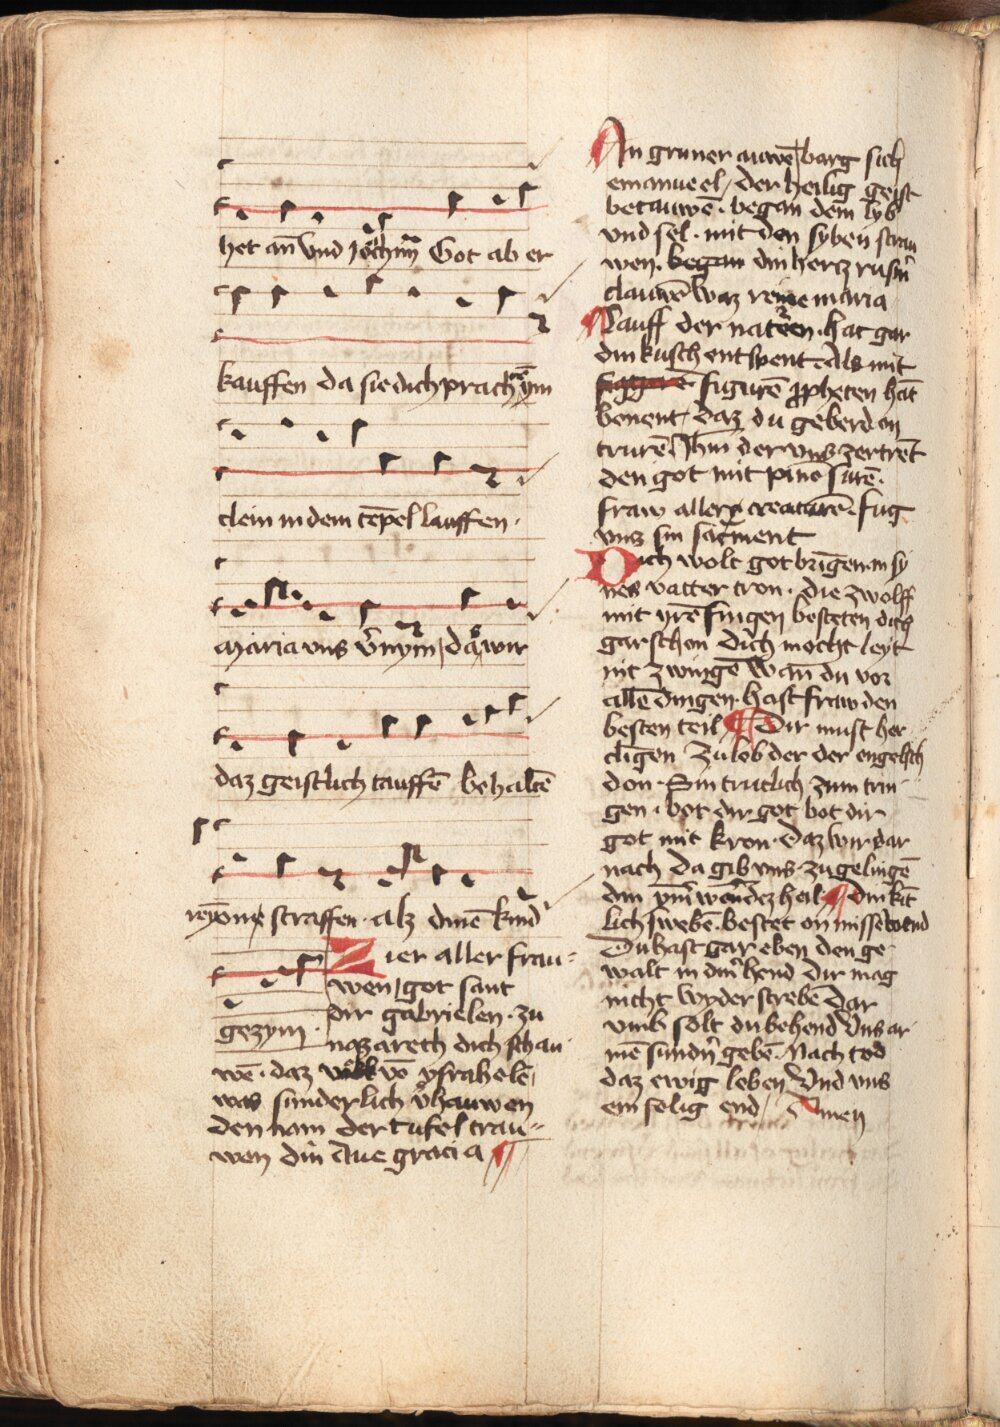 het an̄ vnd Jochim̄ Got ab er
kauffen da sie dich prachtē ÿnn
clein in dem tēpel lauffen ·
Maria vns v̓nym, da wir
daz geistlich tauffē behaltē
straffen · alz dinē kind
gezym ·
Zier aller frau⸗
wen, got sant
dir gabrielen · zu
nazareth dich schau
wē · daz volk vō ysrahelē,
was sunderlich v̓hauwen
den nam der tufel trau⸗
wen din Aue gracia ¶
An gruner auwē barg sich
emanueel, der heilig geist
betauwē · began dem lyb
vnd sel · mit den syben frau
wen. began din hercz
clauwē waz reine maria
¶ Lauff der naturen · hat gar
din kusch entspent. Als mit
figurē ꝓpheten hāt
benent, daz du geberd on
trurē Jhm̄ der vns zertrēt
den got mit pine surē.
fraw aller creaturē. fug
vns sin sacͣment
Dich wolt got brīgen in sy
nes vatter tron · die zwolff
mit yrē singen besteten dich
gar schon dich mocht leyt
nit zwingē Wan̄ du vor
allē dingen · hast fraw den
besten teil ¶ Dir must her
clīgen zu lob der der engelsch
don · Sin trutlich zum trin
gen · bot dir got bot dir
got mit kron · daz wir dar
nach da gib vns zu gelingē
din heil ¶ din kīt
lich swebē · bestet on missewend
Du hast gar eben den ge⸗
walt in din̓ hend dir mag
nicht wyder strebē Dar
vmb solt du behend Vns ar⸗
mē sundn̓ gebē. Nach tod
daz ewig leben Vnd vns
ein selig end, Amen